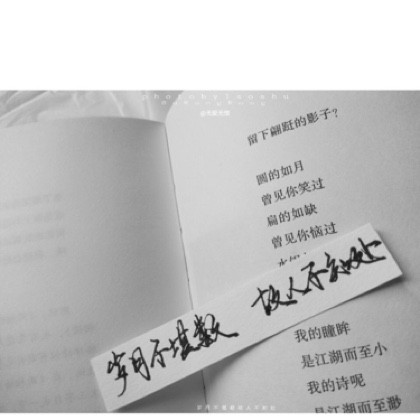 photobylaoshu
留下翩跹的影子?
圆的如月
曾见你笑过
扁的如缺
曾见你恼过
岁月不堪数 故人不知处
我的瞳眸
是江湖而至小
我的诗呢
是江湖而至渺
岁月不堪数故人不知处